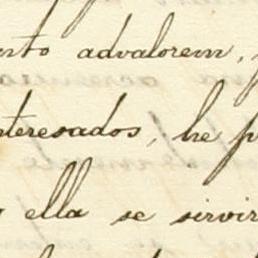 nto advalorem,
nteresados, he p
ella se servir